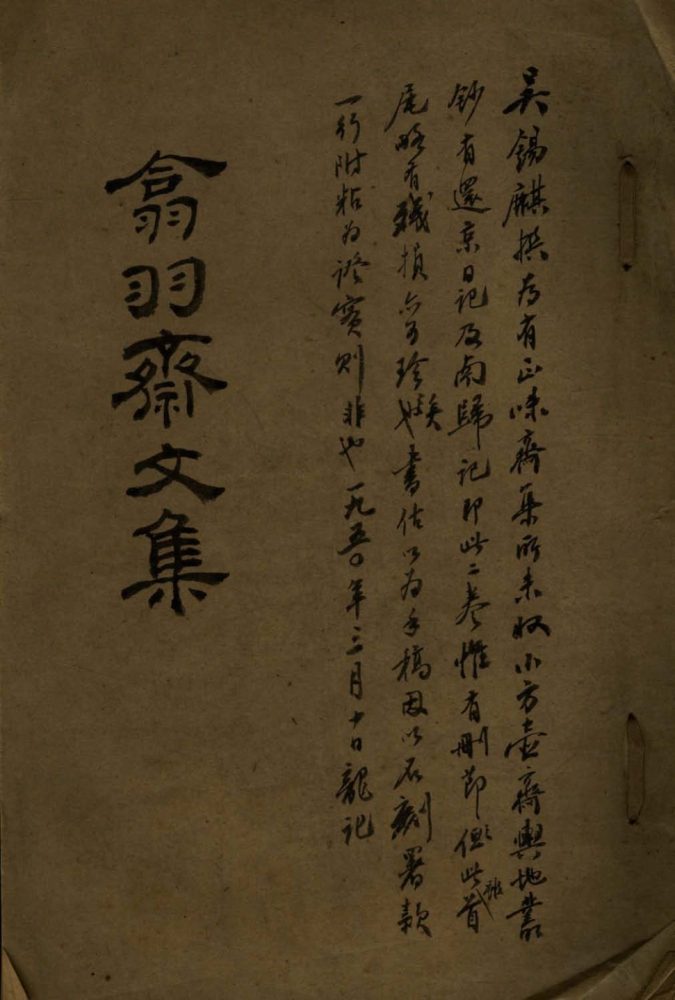 吴錫麒撰为有正味齋集所未收小方壺齋輿地叢
鈔有還京日記及南歸記即此二卷惟有刪節但此雖首
尾略有殘損亦可珍矣書估以为手稿因以石刻署款
一行附粘为證實則非也一九五〇年三月十日龍记
翕羽齋文集